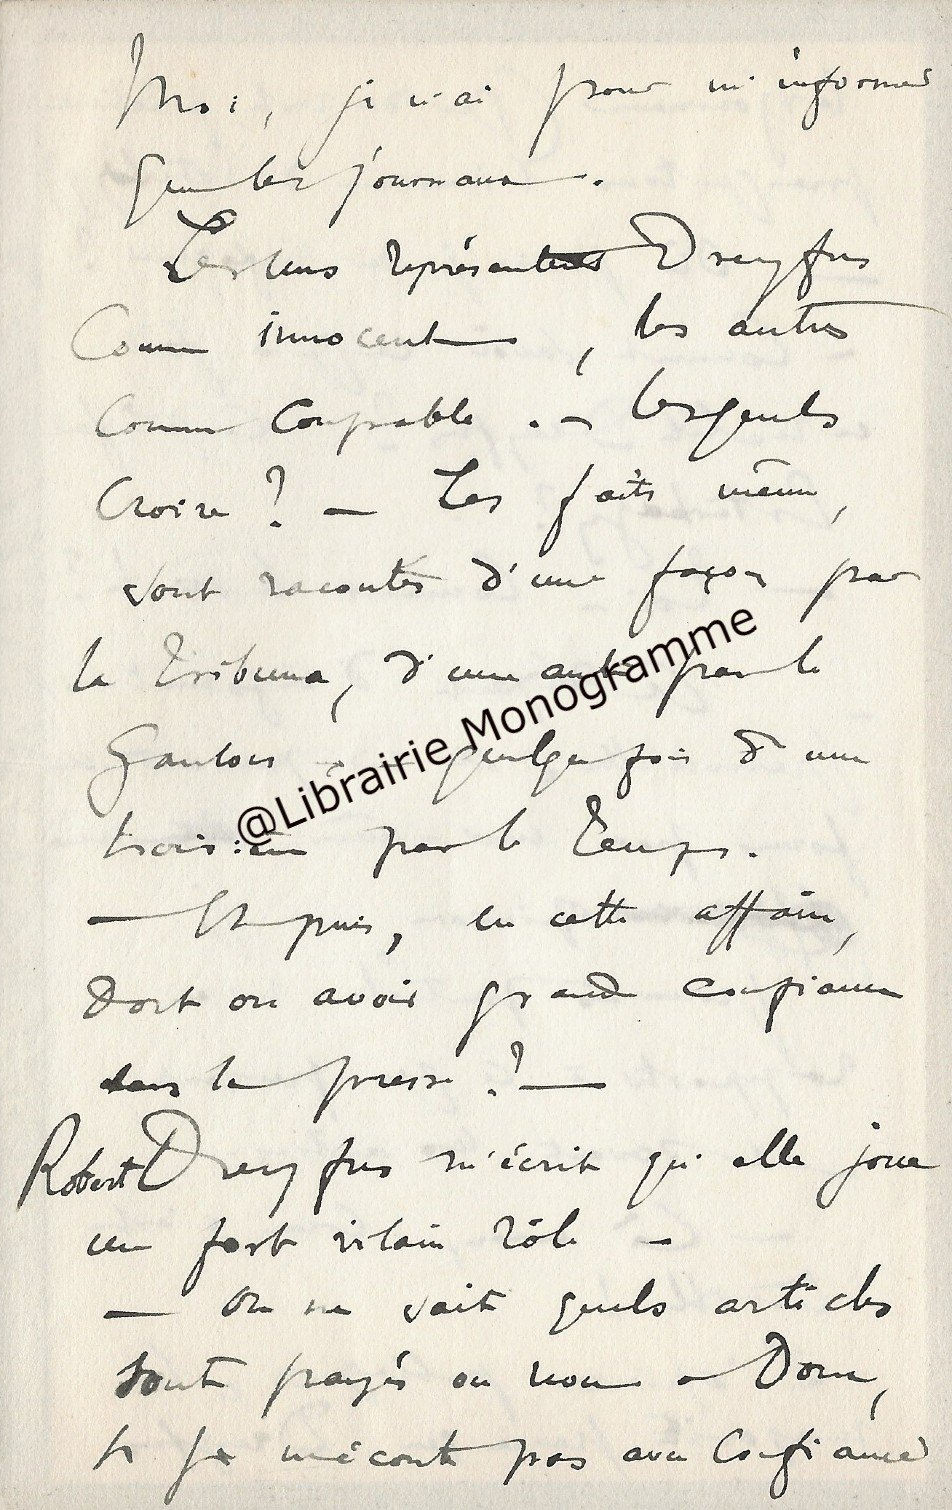 Moi, je n'ai pour m'informer
que les journaux.
Les uns représentent Dreyfus
comme innocent, les autres
comme coupable. – Lesquels
croire ? – Les faits même,
sont racontés d'une façon par
la Tribuna, d'une autre par le
Gaulois – quelquefois d'une
troisième par le Temps.
@Librairie Monogramme
— Et puis, en cette affaire,
doit on avoir grande confiance
dans la presse ? —
Robert Dreyfus m'écrit qu'elle joue
un fort vilain rôle –
— On ne sait quels articles
sont payés ou non – Donc,
si je n'écoute pas avec confiance